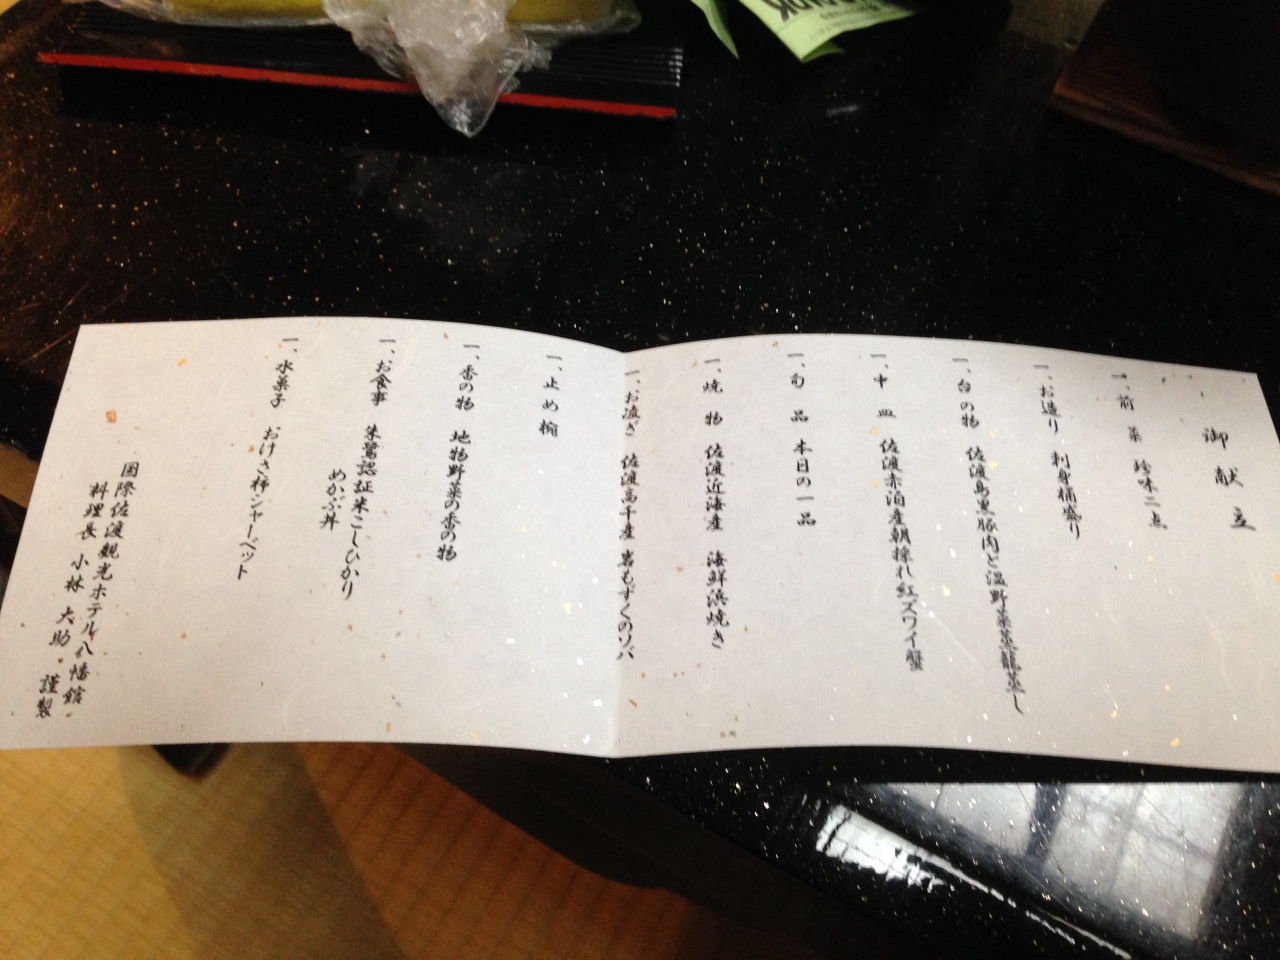 御献立
一、前菜 珍味二点
一、お造り 刺身桶盛り
一、台の物 佐渡島黒豚肉と温野菜蒸籠蒸し
一、中皿 佐渡赤泊産朝採れ紅ズワイ蟹
一、旬品 本日の一品
一、焼物 佐渡近海産 海鮮浜焼き
一、お凌ぎ 佐渡高千産 岩もずくのソバ
一、止め椀
一、香の物 地物野菜の香の物
一、お食事 朱鷺認証米こしひかり
めかぶ丼
一、水菓子 おけさ柿シャーベット
国際佐渡観光ホテル八幡館
料理長 小林 大助 謹製